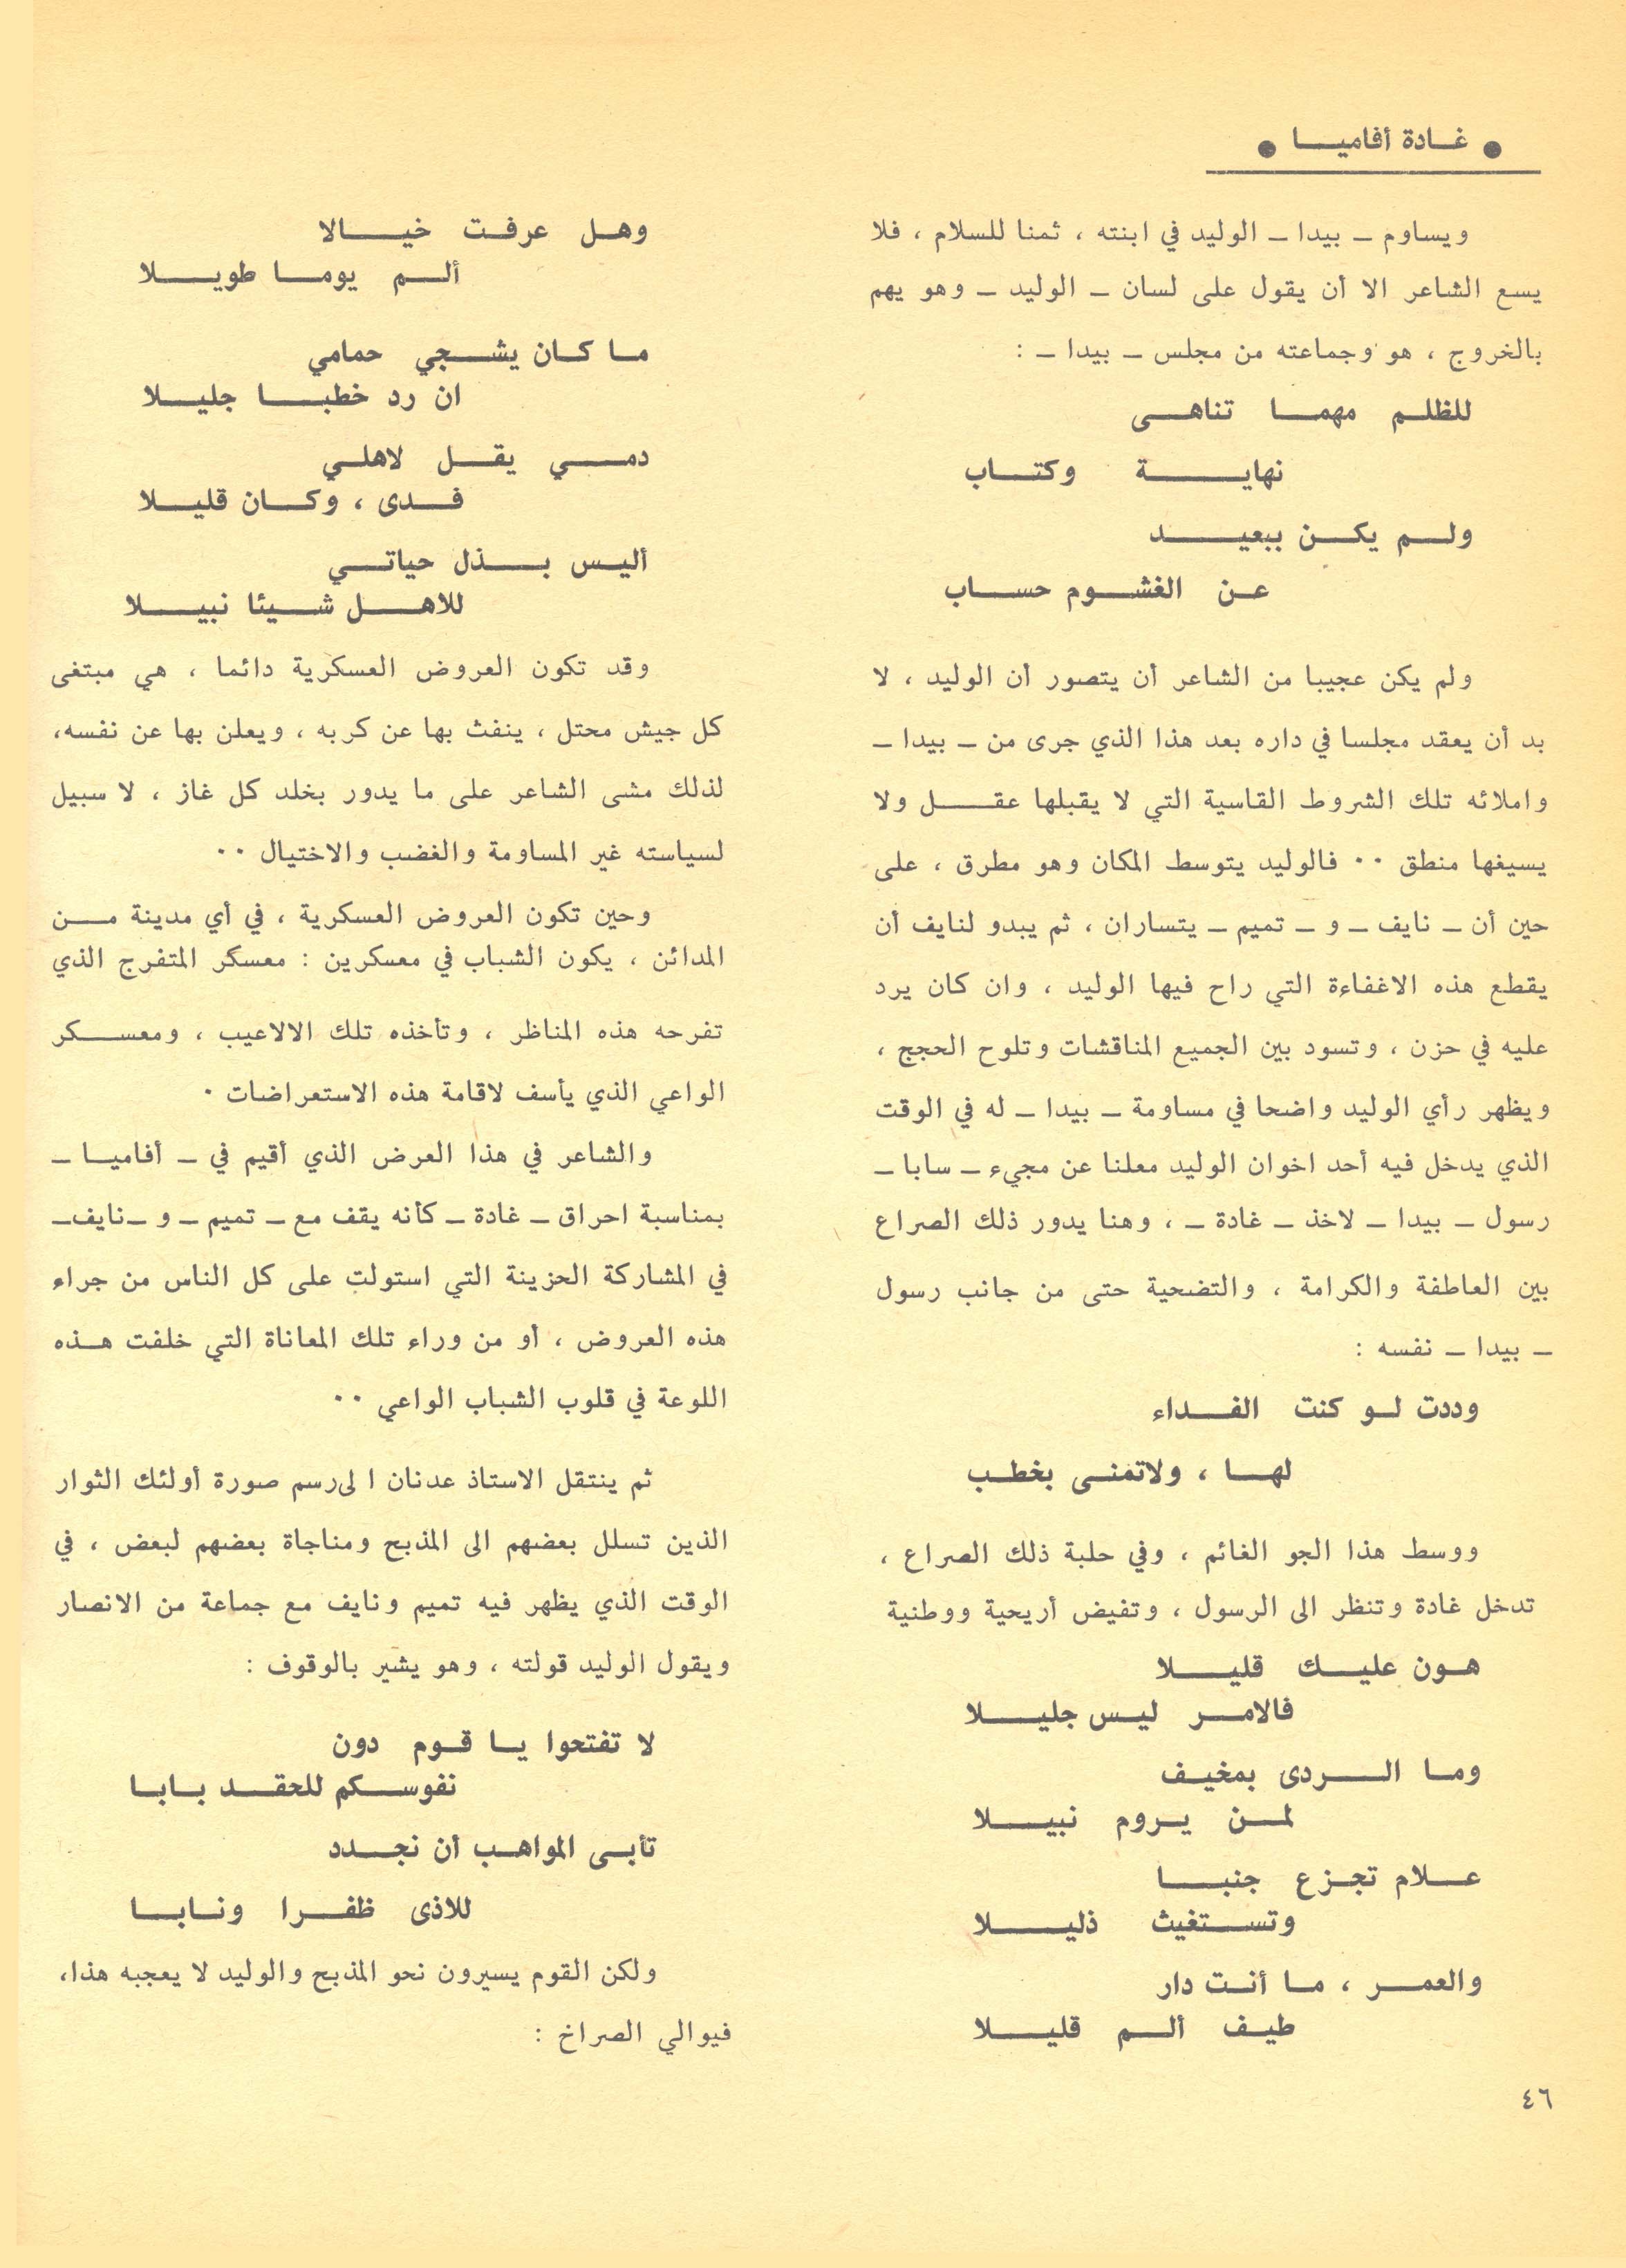 ● غادة أفاميا ●
ويساوم ـ بيدا ـ الوليد في ابنته ، ثمنا للسلام ، فلا
يسع الشاعر الا أن يقول على لسان ـ الوليد ـ وهو يهم
بالخروج ، هو وجماعته من مجلس ـ بيدا ـ :
للظلم مهما تناهى
نهاية وكتاب
ولم يكن ببعيد
عن الغشوم حساب
ولم يكن عجيبا من الشاعر أن يتصور أن الوليد ، لا
بد أن يعقد مجلسا في داره بعد هذا الذي جرى من ـ بيدا ـ
واملائه تلك الشروط القاسية التي لا يقبلها عقل ولا
يسيغها منطق ٠٠ فالوليد يتوسط المكان وهو مطرق ، على
حين أن ـ نايف ـ و ـ تميم ـ يتساران ، ثم يبدو لنايف أن
يقطع هذه الاغفاءة التي راح فيها الوليد ، وان كان يرد
عليه في حزن ، وتسود بين الجميع المناقشات وتلوح الحجج ،
ويظهر رأي الوليد واضحا في مساومة ـ بيدا ـ له في الوقت
الذي يدخل فيه أحد اخوان الوليد معلنا عن مجيء ـ سابا ـ
رسول ـ بيدا ـ لاخذ ـ غادة ـ ، وهنا يدور ذلك الصراع
بين العاطفة والكرامة ، والتضحية حتى من جانب رسول
ـ بيدا ـ نفسه :
وددت لو كنت الفداء
لها ، ولاتمنى بخطب
ووسط هذا الجو الغائم ، وفي حلبة ذلك الصراع ،
تدخل غادة وتنظر الى الرسول ، وتفيض أريحية ووطنية
هون عليك قليلا
فالامر ليس جليلا
وما الردى بمخيف
لمن يروم نبيلا
علام تجزع جنبا
وتستغيث ذليلا
والعمر ، ما أنت دار
طيف ألم قليلا
وهل عرفت خيالا
ألم يوما طويلا
ما كان يشجي حمامي
ان رد خطبا جليلا
دمي يقل لاهلي
فدى ، وكان قليلا
أليس بذل حياتي
للاهل شيئا نبيلا
وقد تكون العروض العسكرية دائما ، هي مبتغى
كل جيش محتل ، ينفث بها عن كربه ، ويعلن بها عن نفسه،
لذلك مشى الشاعر على ما يدور بخلد كل غاز ، لا سبيل
لسياسته غير المساومة والغضب والاختيال ٠٠
وحين تكون العروض العسكرية ، في أي مدينة من
المدائن ، يكون الشباب في معسكرين : معسكر المتفرج الذي
تفرحه هذه المناظر ، وتأخذه تلك الالاعيب ، ومعسكر
الواعي الذي يأسف لاقامة هذه الاستعراضات ٠
والشاعر في هذا العرض الذي أقيم في ـ أفاميا ـ
بمناسبة احراق ـ غادة ـ كأنه يقف مع ـ تميم ـ و ـ نايف ـ
في المشاركة الحزينة التي استولت على كل الناس من جراء
هذه العروض ، أو من وراء تلك المعاناة التي خلفت هذه
اللوعة في قلوب الشباب الواعي ٠٠
ثم ينتقل الاستاذ عدنان الى رسم صورة أولئك الثوار
الذين تسلل بعضهم الى المذبح ومناجاة بعضهم لبعض ، في
الوقت الذي يظهر فيه تميم ونايف مع جماعة من الانصار
ويقول الوليد قولته ، وهو يشير بالوقوف :
لا تفتحوا يا قوم دون
نفوسكم للحقد بابا
تأبى المواهب أن نجدد
للاذى ظفرا ونابا
ولكن القوم يسيرون نحو المذبح والوليد لا يعجبه هذا،
فيوالي الصراخ :
٤٦